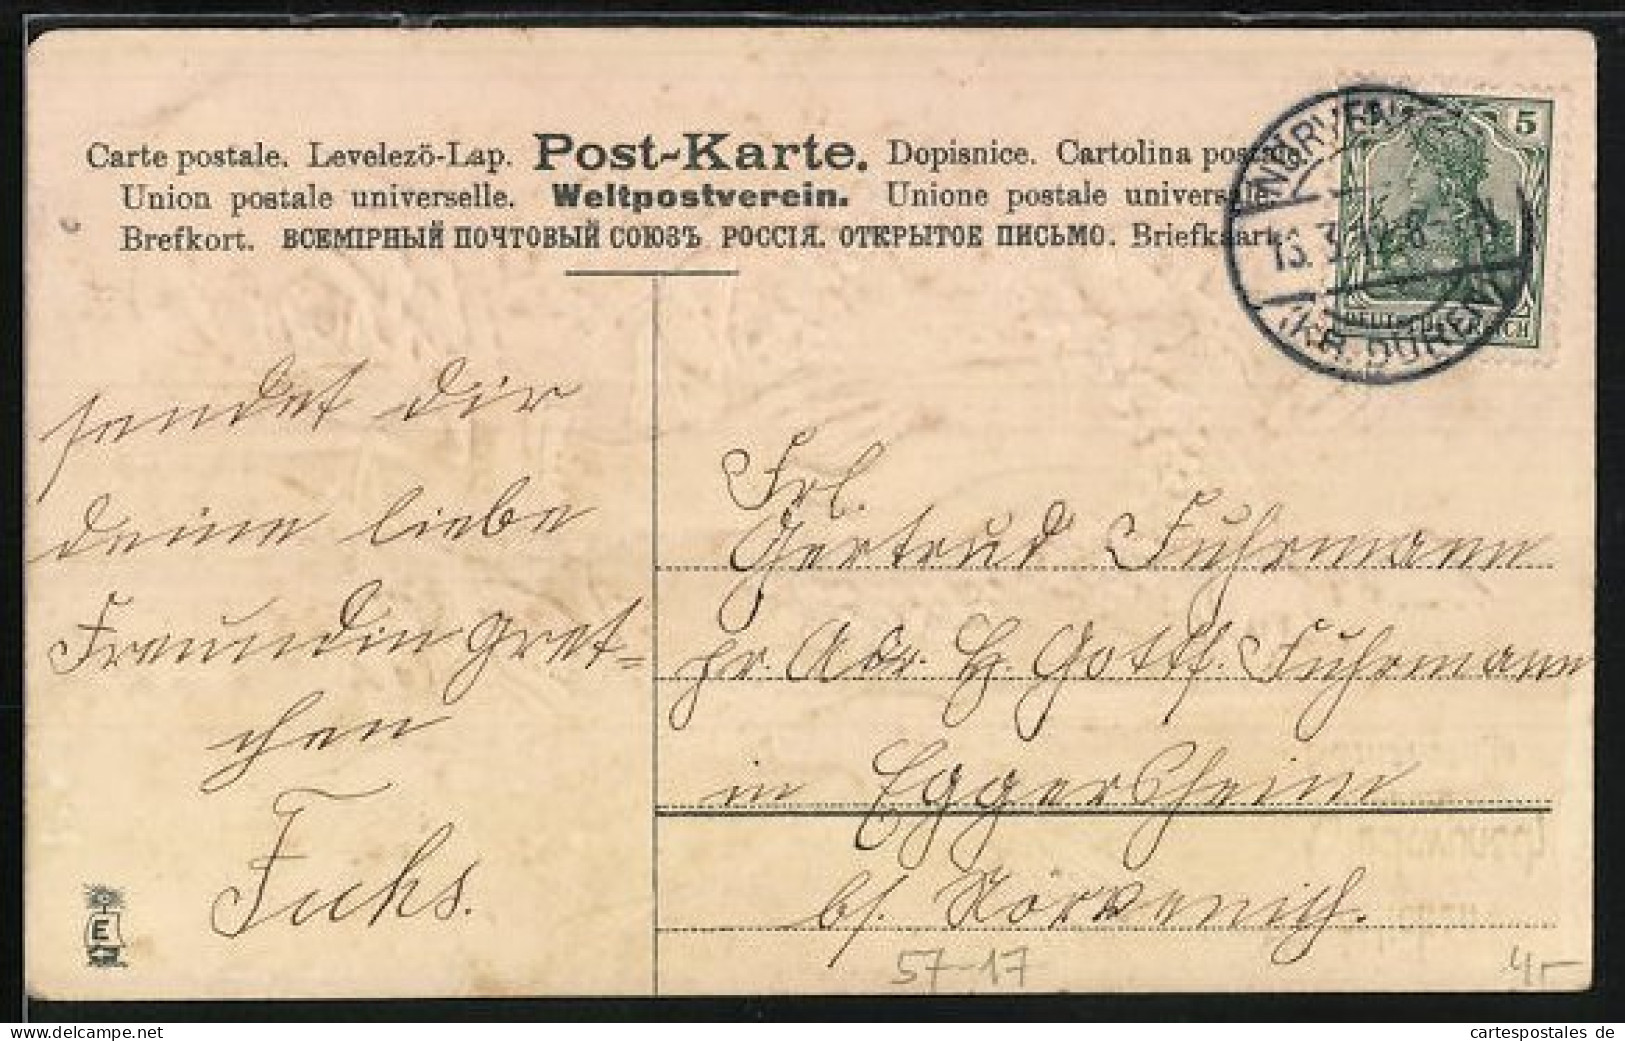 Carte postale. Levelezö-Lap. Post-Karte. Dopisnice. Cartolina postale.
Union postale universelle. Weltpostverein. Unione postale universale.
Brefkort. ВСЕМІРНЫЙ ПОЧТОВЫЙ СОЮЗЪ РОССІЯ. ОТКРЫТОЕ ПИСЬМО. Briefkaart.
5
DEUTSCHES REICH
NÖRVENICH
13. 3. 8-
(KR. DÜREN)
sendet dir
deine liebe
Freundin Gret-
chen
Fuchs.
Frl.
Gertrud Fuhrmann
pr. Adr. H. Gottf. Fuhrmann
in Eggersheim
bs. Nörvenich.
57-17
4,-
E
cartespostales de